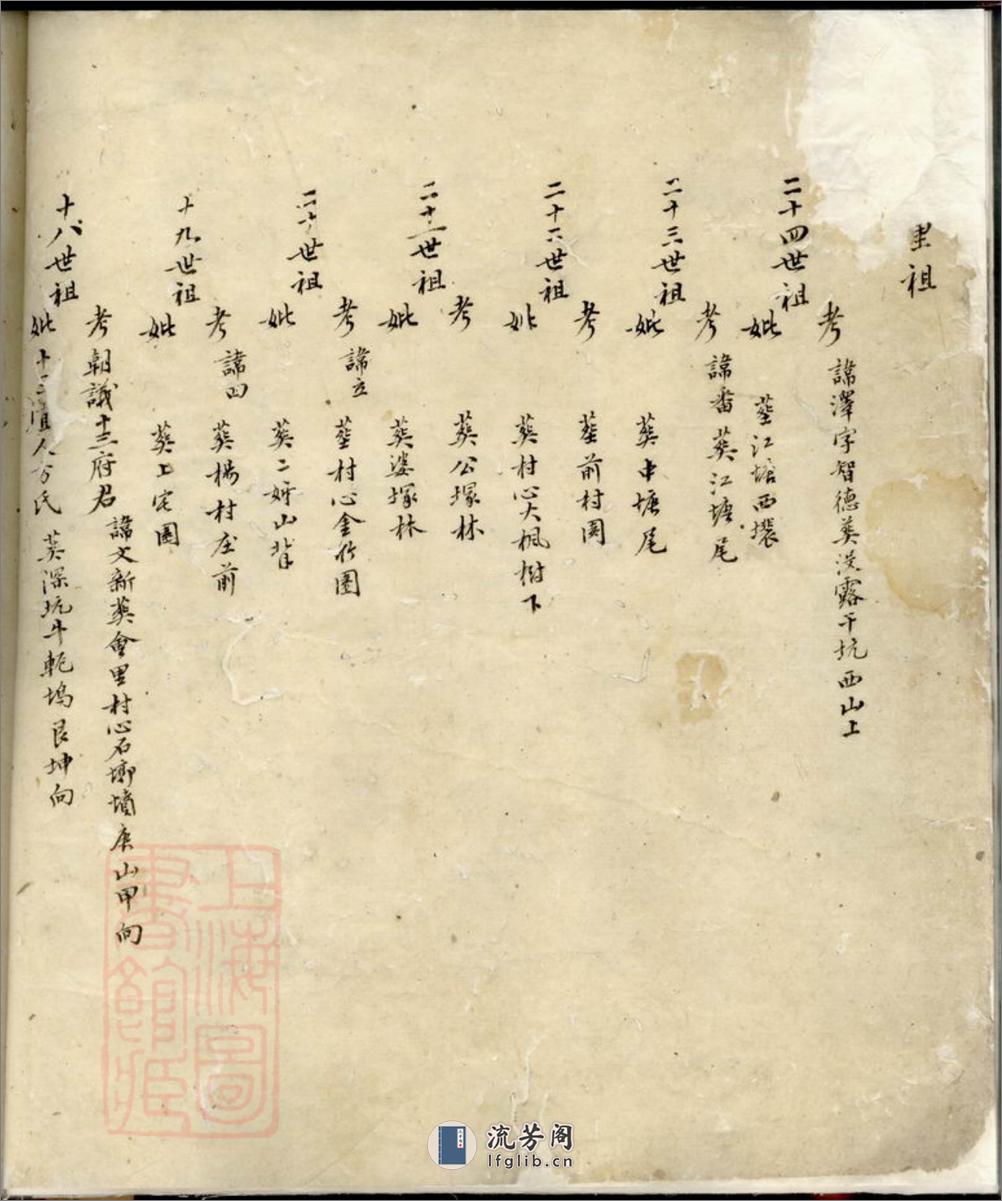 里祖
二十四世祖
考 諱澤字智德葬淡露干坑西山上
妣 塟江塘西墩
二十三世祖
考 諱番 葬江塘尾
妣 葬中塘尾
二十二世祖
考 塟前村園
妣 葬村心大楓樹下
二十一世祖
考 葬公塚林
妣 葬婆塚林
二十世祖
考 諱立 塟村心金竹園
妣 葬二好山背
十九世祖
考 諱四 葬楊村庄前
妣 葬上宅園
十八世祖
考 朝議十三府君 諱文新葬會里村心石塝墙庚山甲向
妣 十三 人方氏 葬深坑牛軛塢艮坤向
上海圖
書館藏
流芳阁
lfglib.cn